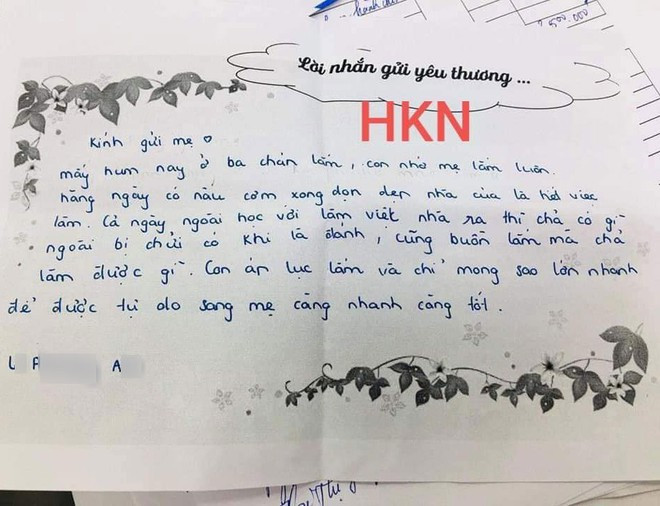 500.000
Lời nhắn gửi yêu thương ...
HKN
Kính gửi mẹ ♡
mấy hum nay ở ba chán lắm, con nhớ mẹ lắm luôn.
hàng ngày có nấu cơm xong dọn dẹp nhà cửa là hết việc
làm. Cả ngày ngoài học với làm việt nhà ra thì chả có gì
ngoài bị chửi có khi là đánh, cũng buồn lắm mà chả
làm được gì. Con áp lực lắm và chỉ mong sao lớn nhanh
để được tự do sang mẹ càng nhanh càng tốt.
L A A